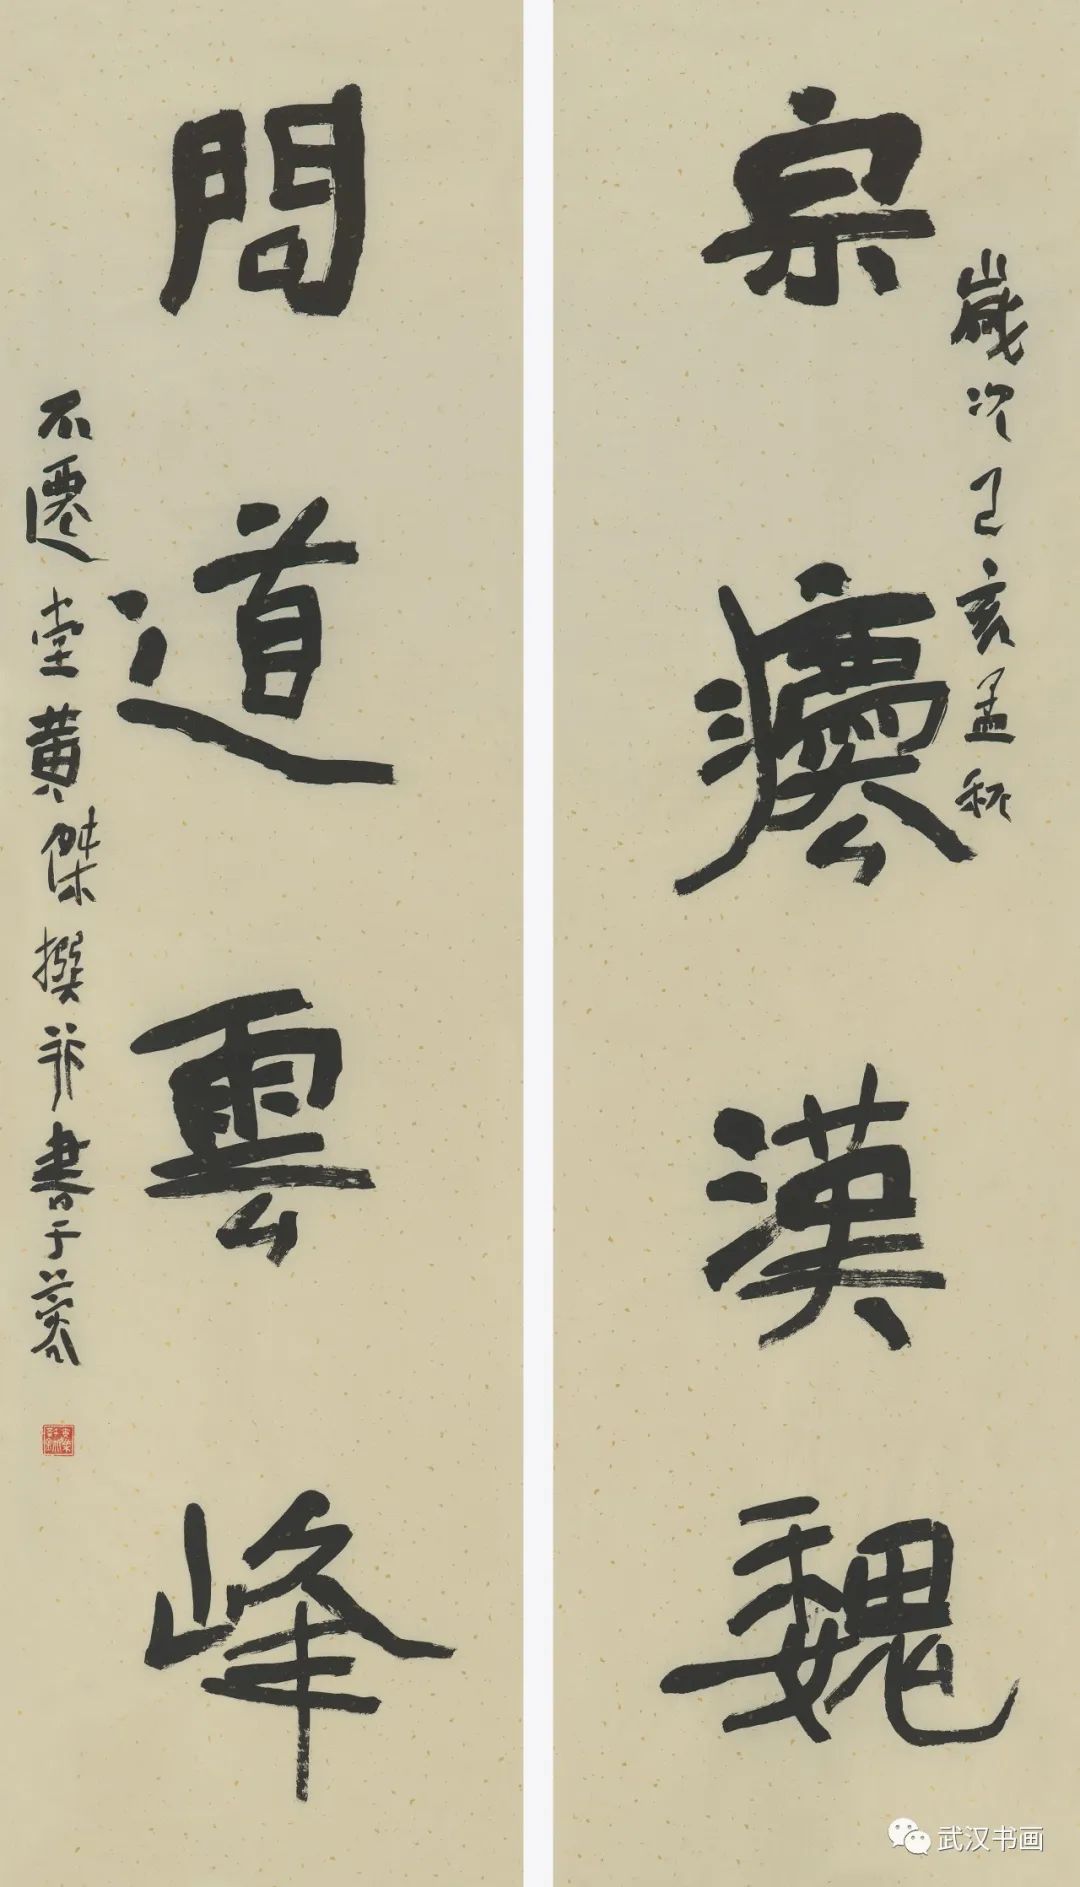 歲次己亥孟秋
宗漢魏
問道雲峰
不遷堂黃傑撰并書于蓉
武汉书画